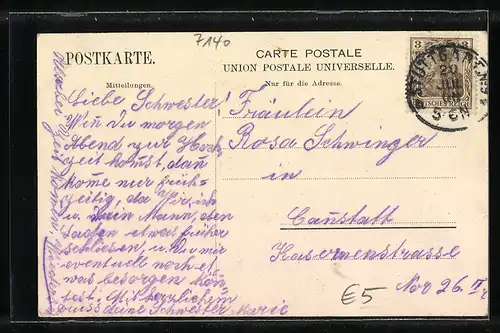 7140
POSTKARTE.
CARTE POSTALE
UNION POSTALE UNIVERSELLE.
Mitteilungen.
Nur für die Adresse.
3
3
STUTTGART
20
5-6N
DEUTSCHES REICH
Liebe Schwester!
Wen du morgen
Abend zur Hoch
zeit komst, dan
kome nur früh-
zeitig, da wir, ich
u. Dein Mann, eben
etwas früher
schliesen, u. Du mir
eventuell noch et
was besorgen kön
test. Herzlichem
Gruss deine Schwester Marie
Fräulein
Rosa Schwinger
in
Canstatt
Kasernenstrasse
Nor 26 II
€5